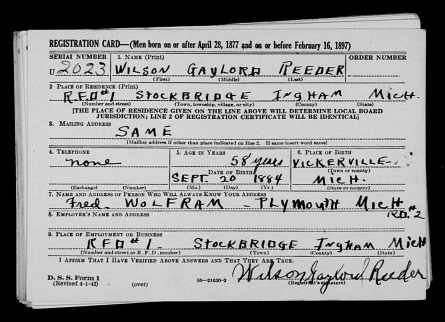 REGISTRATION CARD—(Men born on or after April 28, 1877 and on or before February 16, 1897)
SERIAL NUMBER 1. NAME (Print) ORDER NUMBER
U 2023 WILSON GAYLORD REEDER
(First) (Middle) (Last)
2. PLACE OF RESIDENCE (Print)
R.F.D #1 STOCKBRIDGE INGHAM MICH.
(Number and street) (Town, township, village, or city) (County) (State)
[THE PLACE OF RESIDENCE GIVEN ON THE LINE ABOVE WILL DETERMINE LOCAL BOARD
JURISDICTION; LINE 2 OF REGISTRATION CERTIFICATE WILL BE IDENTICAL]
3. MAILING ADDRESS
SAME
[Mailing address if other than place indicated on line 2. If same insert word same]
4. TELEPHONE 5. AGE IN YEARS 6. PLACE OF BIRTH
none 58 years VICKERVILLE
DATE OF BIRTH (Town or county)
SEPT. 20 1884 MICH.
(Exchange) (Number) (Mo.) (Day) (Yr.) (State or country)
7. NAME AND ADDRESS OF PERSON WHO WILL ALWAYS KNOW YOUR ADDRESS
Fred. WOLFRAM - PLYMOUTH MICH
8. EMPLOYER'S NAME AND ADDRESS R.D. #2
9. PLACE OF EMPLOYMENT OR BUSINESS
RFD #1. STOCKBRIDGE INGHAM MICH
(Number and street or R. F. D. number) (Town) (County) (State)
I AFFIRM THAT I HAVE VERIFIED ABOVE ANSWERS AND THAT THEY ARE TRUE.
D. S. S. Form 1 Wilson Gaylord Reeder
(Revised 4-1-42) (over) 16—21630-2 (Registrant's signature)